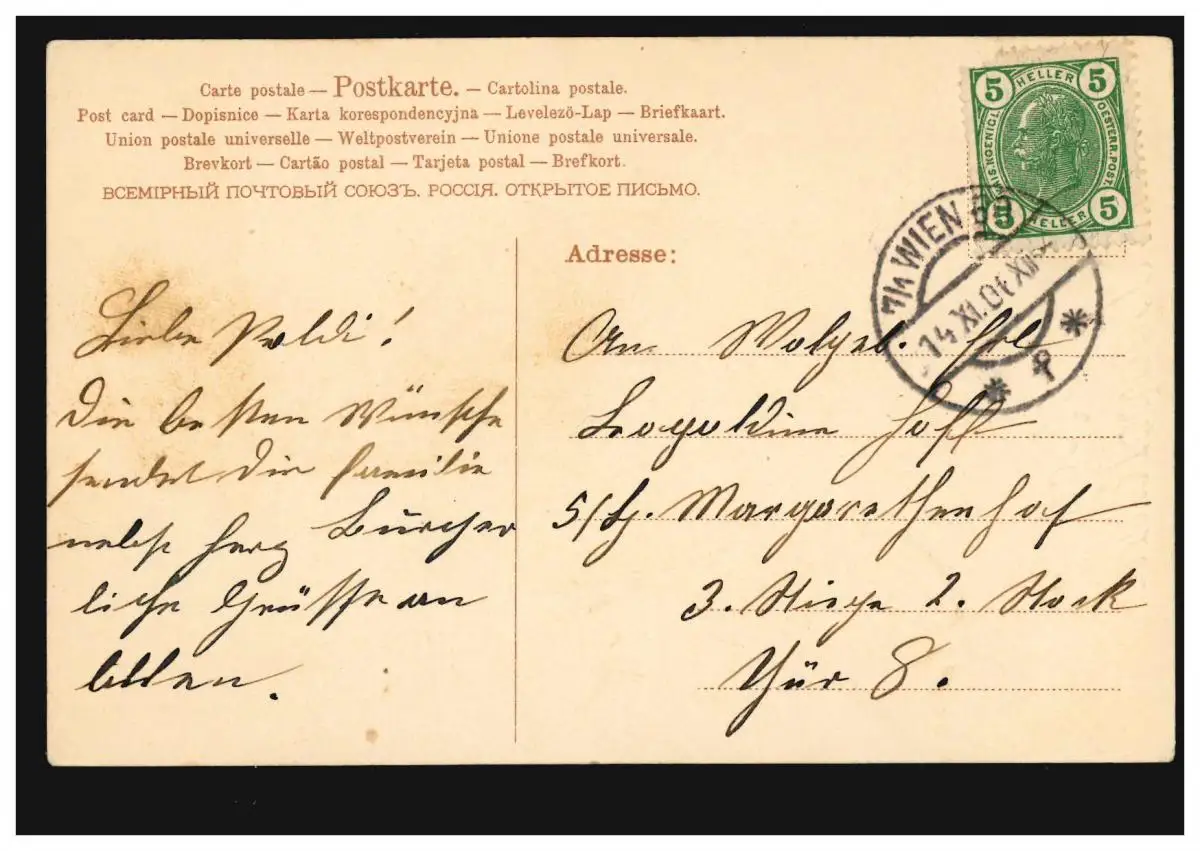 Carte postale — Postkarte. — Cartolina postale.
Post card — Dopisnice — Karta korespondencyjna — Levelező-Lap — Briefkaart.
Union postale universelle — Weltpostverein — Unione postale universale.
Brevkort — Cartão postal — Tarjeta postal — Brefkort.
ВСЕМІРНЫЙ ПОЧТОВЫЙ СОЮЗЪ. РОССІЯ. ОТКРЫТОЕ ПИСЬМО.
5 HELLER 5
OESTERR. POST.
5 HELLER 5
WIEN
14.XI.06
Adresse:
Liebe Poldi!
Die besten Wünsche
sendet Dir Familie
nebst herz
liche Grüsse an
Allen.
An Wolgeb. Frl
Leopoldine Hoff
5/ Margarethenhof
3. Stiege 2. Stock
Thür 8.